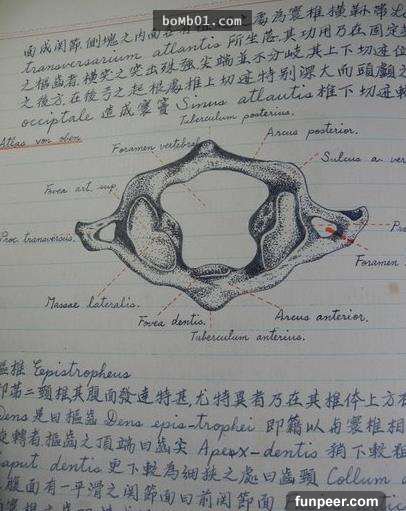 boMb01.com
面成関節,側塊之內面
為寰椎橫靱帶
transversarium atlantis 所坐落,其功用乃在固定
之樞齒,橫突之突出殊強,尖端並不分歧,其上下切迹
之後方,在後弓之起根處椎上切迹特別深大而頭顱
occipitale 造成寰竇 Sinus atlantis 椎下切迹較
Tuberculum posterius.
Atlas von oben
Foramen vertebral
Arcus posterior.
Sulcus a ver
Fovea art. sup.
Proc. transversus.
Foramen
Massae lateralis.
Arcus anterior.
Fovea dentis.
Tuberculum anterius.
樞椎 Eepistropheus
即第二頸椎其腹面發達特甚,尤特異者乃在其椎体上方
Dens 是曰樞齒 Dens epis-trophei 即籍以與寰椎相
旋轉者樞齒之頂端曰齒尖 Apex-dentis 稍下較粗
caput dentis 更下較為細狹之處曰齒頸 Collum
腹面有一平滑之関節面曰前関節面
funpeer.com